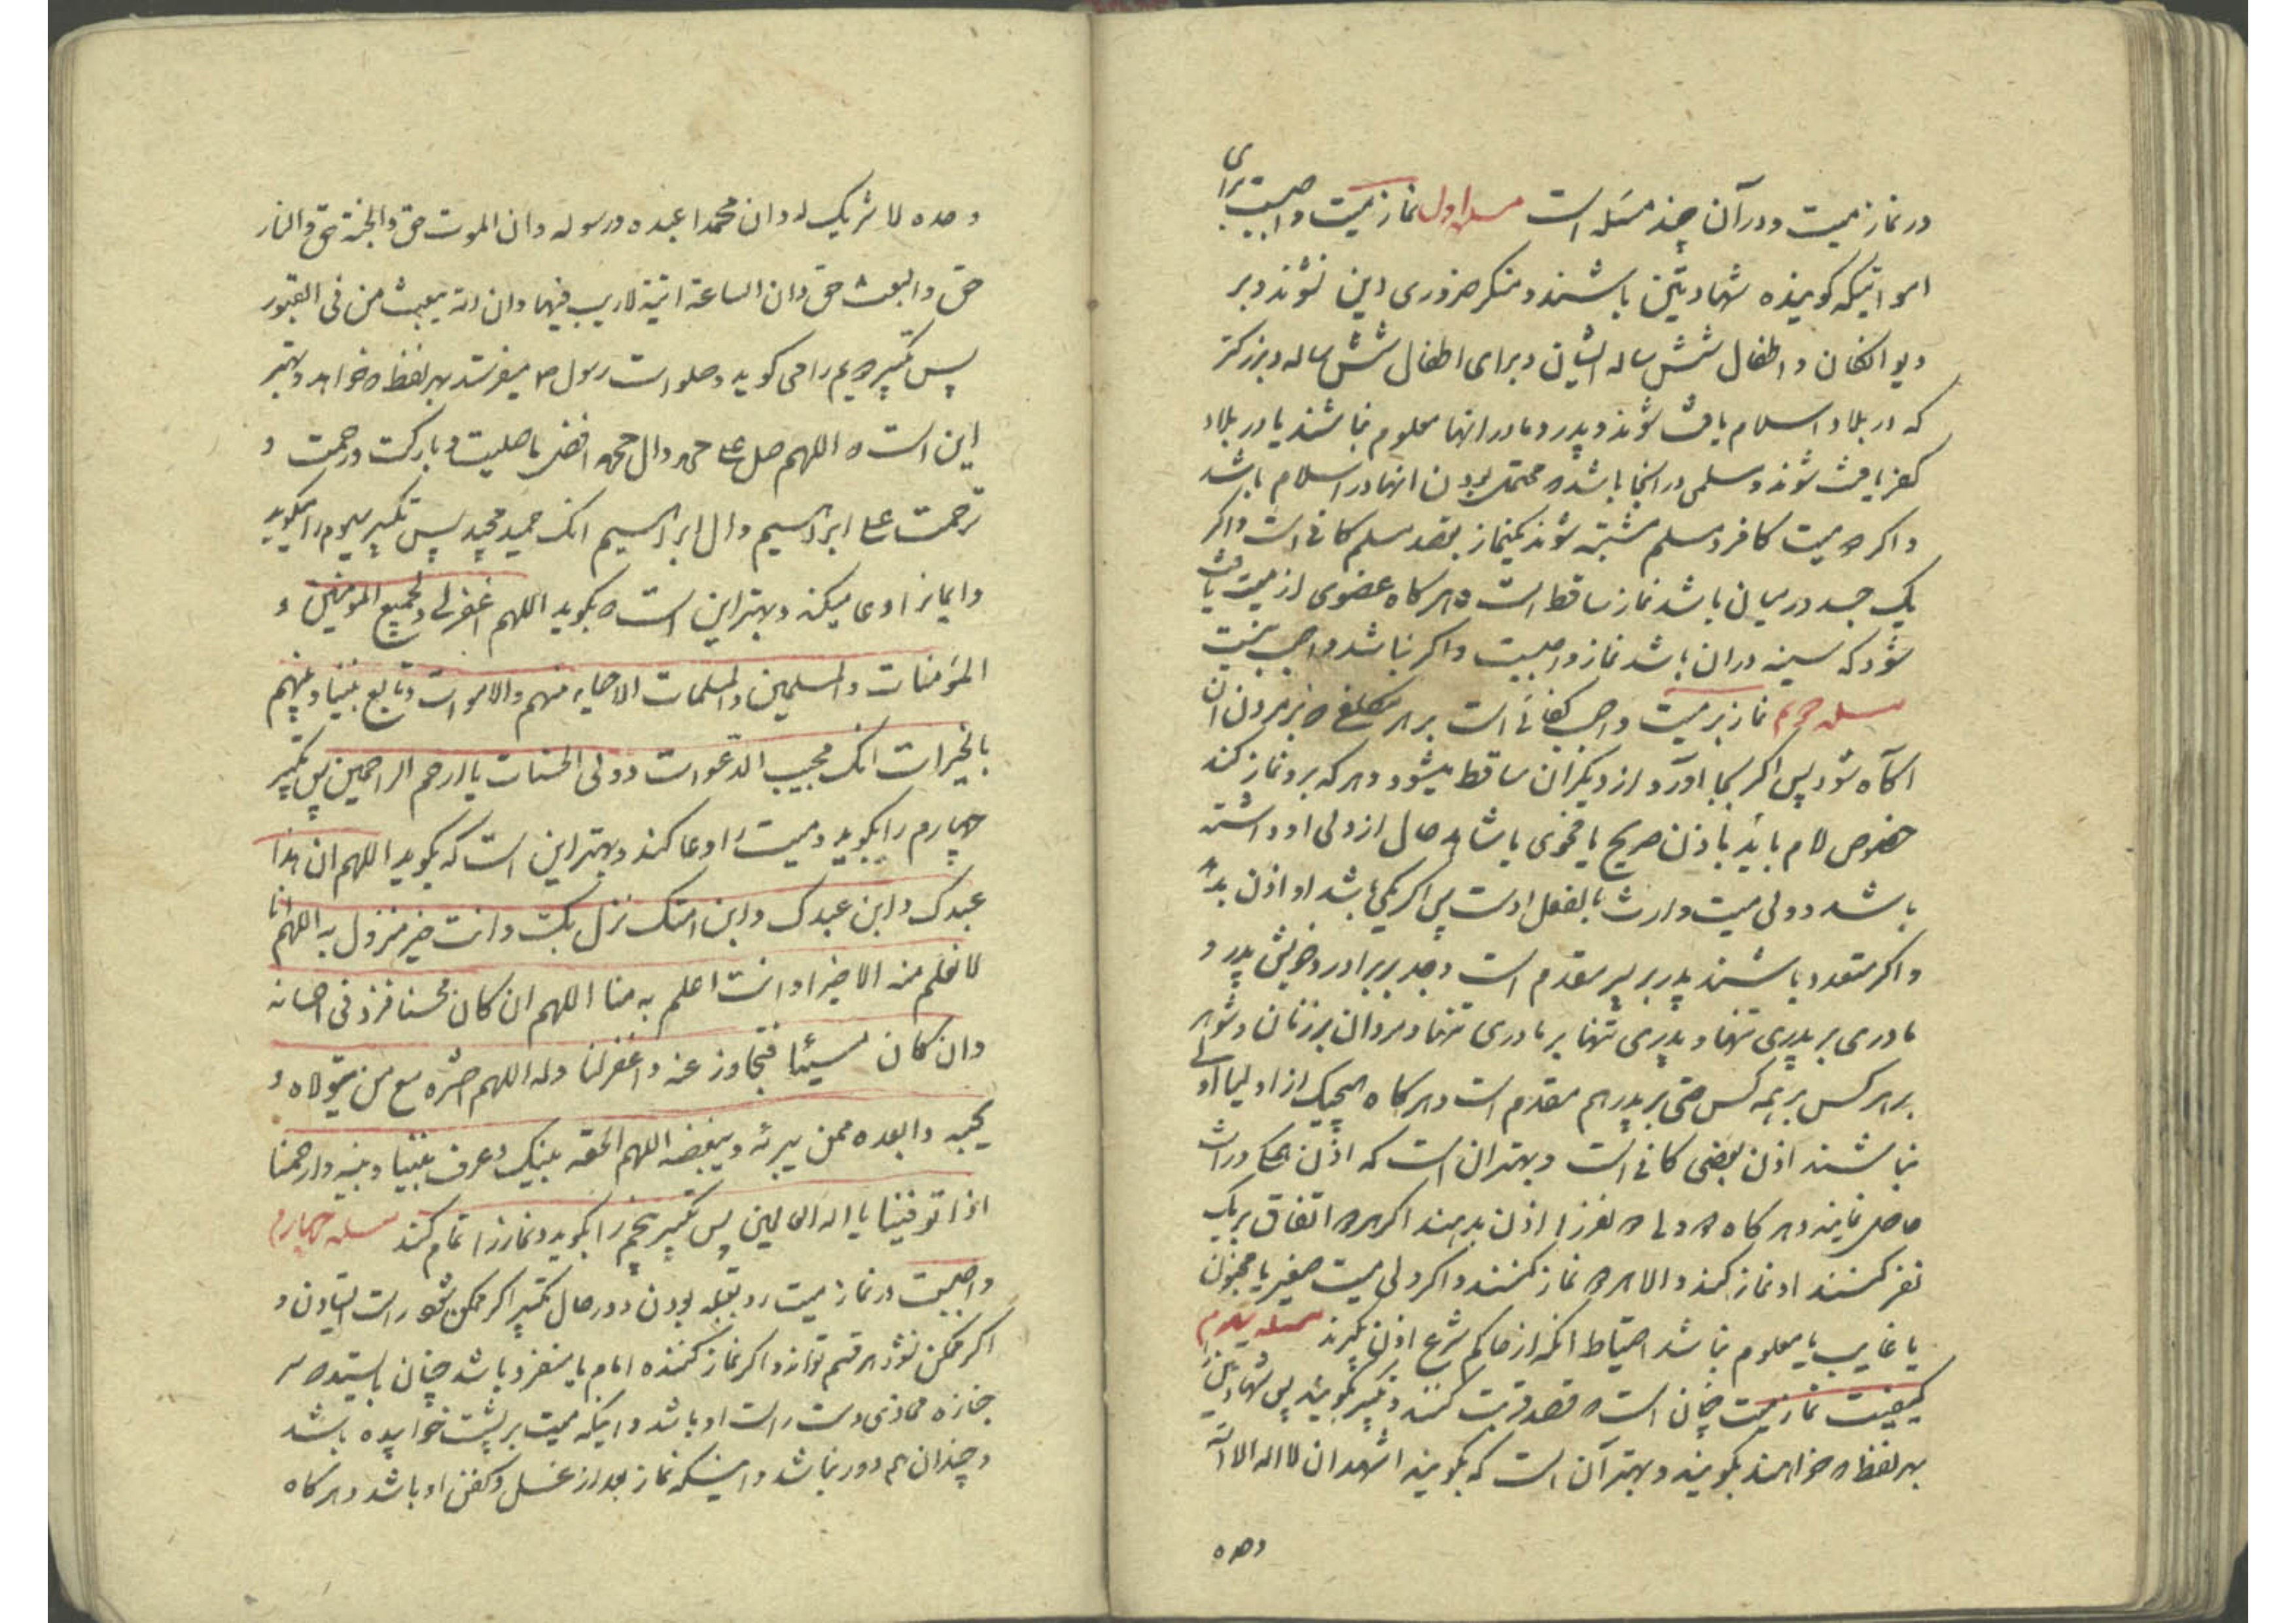 در نماز میت و در آن چند مسئله است مسئله اول نماز میت واجبست برای
امواتیکه گوینده شهادتین باشند و منکر ضروری دین نشوند و بر
دیوانگان و اطفال شش ساله ایشان و برای اطفال شش ساله و بزرگتر
که در بلاد اسلام یافت شوند و پدر و مادر انها معلوم نباشند یا در بلاد
کفر یافت شوند و مسلمی در انجا باشد که محتمل بودن انها در اسلام باشد
و اگر میت کافر و مسلم مشتبه شوند یکنماز بقصد مسلم کافی است و اگر
یک جسد در میان باشد نماز ساقط است و هرگاه عضوی از میت یافت
شود که سینه در ان باشد نماز واجبست و اگر نباشد واجب نیست
مسئله دویم نماز بر میت واجب کفائی است بر هر مکلف که بر مردن ان
اگاه شود پس اگر یکی بجا آورد از دیگران ساقط میشود و هر که بر او نماز کند
خصوص امام باید باذن صریح یا فحوی یا شاهد حال از ولی او داشته
باشد و ولی میت وارث بالفعل اوست پس اگر یکی باشد او اذن بدهد
و اگر متعدد باشند پدر بر پسر مقدم است و جد بر برادر و خویش پدر و
مادری بر پدری تنها و پدری تنها بر مادری تنها و مردان بر زنان و شوهر
بر هر کس بر همه کس حتی بر پدر هم مقدم است و هرگاه هیچیک از اولیا اولی
نباشند اذن بعضی کافی است و بهتر ان است که اذن همه وراث
حاصل نمایند و هرگاه نفر را اذن بدهند اگر اتفاق بر یک
نفر کنند او نماز کند والا نماز کنند و اگر ولی میت صغیر یا مجنون
یا غایب یا معلوم نباشد احتیاط انکه از حاکم شرع اذن بگیرند مسئله سیوم
کیفیت نماز میت چنان است که قصد قربت کنند و تکبیر بگویند پس شهادتین را
بهر لفظ که خواهند بگویند و بهتر آن است که بگویند اشهد ان لا اله الا الله
وحده
وحده لا شریک له و ان محمدا عبده و رسوله و ان الموت حق و الجنة حق و النار
حق و البعث حق و ان الساعة اتیة لا ریب فیها و ان الله یبعث من فی القبور
پس تکبیر دویم را می گوید و صلوات رسول ص میفرستد بهر لفظ که خواهد و بهتر
این است که اللهم صل علی محمد و ال محمد افضل ما صلیت و بارکت و رحمت و
ترحمت علی ابراهیم و ال ابراهیم انک حمید مجید پس تکبیر سیوم را میگوید
و بهتر این است که بگوید اللهم اغفر لی و لجمیع المومنین و
المؤمنات و المسلمین و المسلمات الاحیاء منهم و الاموات و تابع بیننا و بینهم
بالخیرات انک مجیب الدعوات و ولی الحسنات یا ارحم الراحمین پس تکبیر
چهارم را بگوید و میت را دعا کند و بهتر این است که بگوید اللهم ان هذا
عبدک و ابن عبدک و ابن امتک نزل بک و انت خیر منزول به اللهم انا
لا نعلم منه الا خیرا و انت اعلم به منا اللهم ان کان محسنا فزد فی احسانه
و ان کان مسیئا فتجاوز عنه و اغفر لنا و له اللهم احشره مع من یتولاه و
یحبه و ابعده ممن یبرئه و یبغضه اللهم الحقه بنبیک و عرف بیننا و بینه و ارحمنا
اذا توفیتنا یا اله العالمین پس تکبیر پنجم را بگوید و نماز را تمام کند مسئله چهارم
واجبست در نماز میت رو بقبله بودن و در حال تکبیر اگر ممکن شود راست ایستادن و
اگر ممکن نشود هر قسم تواند و اگر نماز کننده امام یا منفرد باشد چنان بایستد که سر
جنازه محاذی دست راست او باشد و اینکه میت بر پشت خوابیده باشد
و چندان هم دور نباشد و اینکه نماز بعد از غسل و کفن او باشد و هرگاه